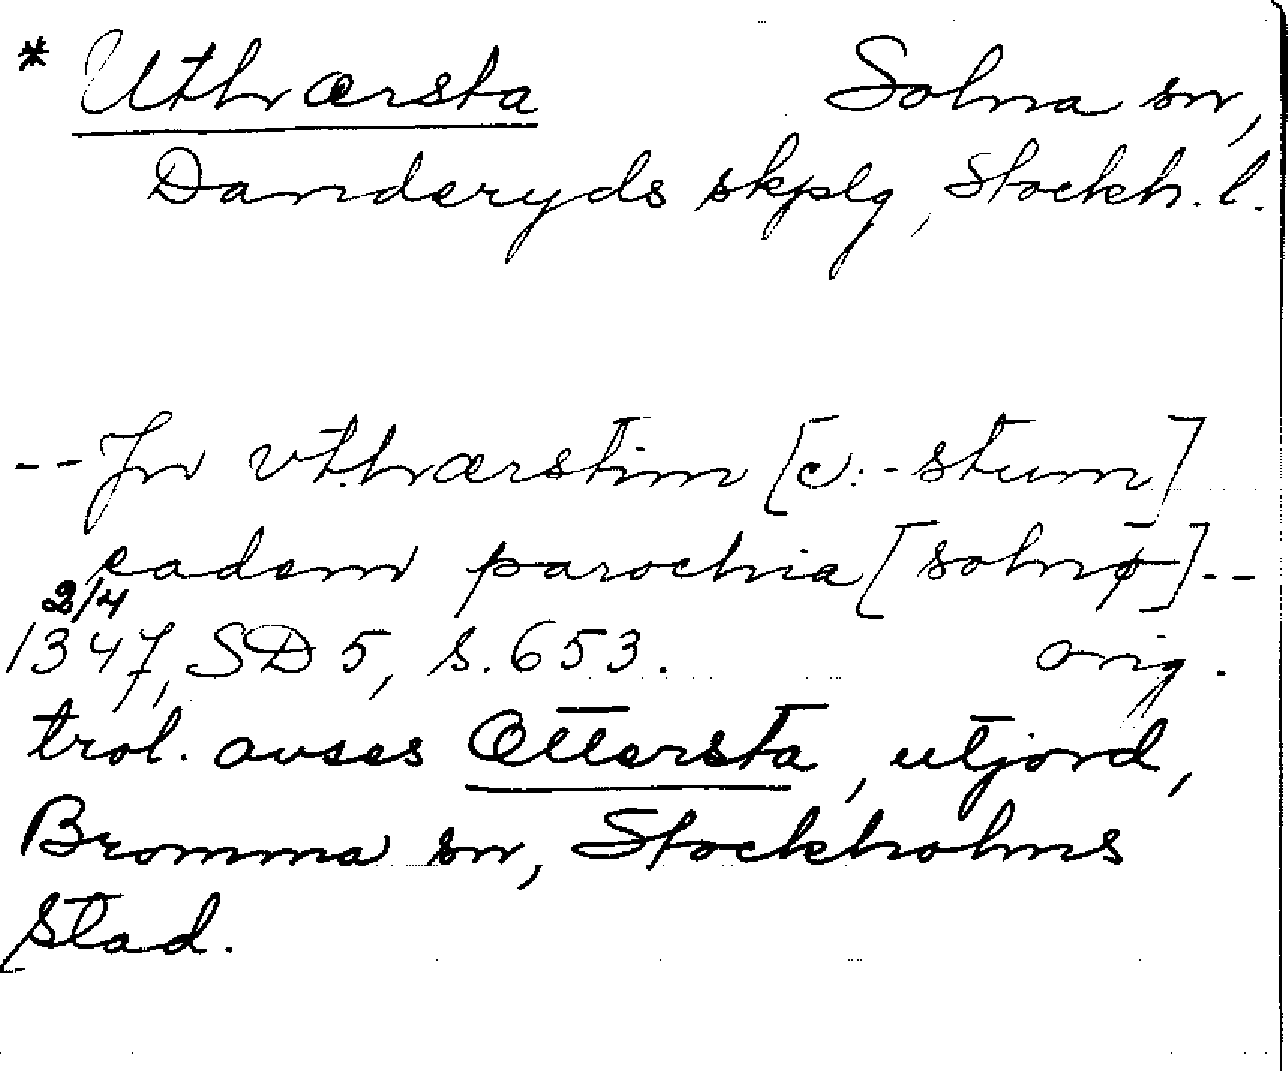 * Uthværsta Solna sn,
Danderyds skplg, Stockh. l.
-- Jn vthværstim [c: -stum]
eadem parochia [solnø]--
2/4
1347, SD 5, s. 653. orig.
trol. avses Ottersta, utjord,
Bromma sn, Stockholms
stad.